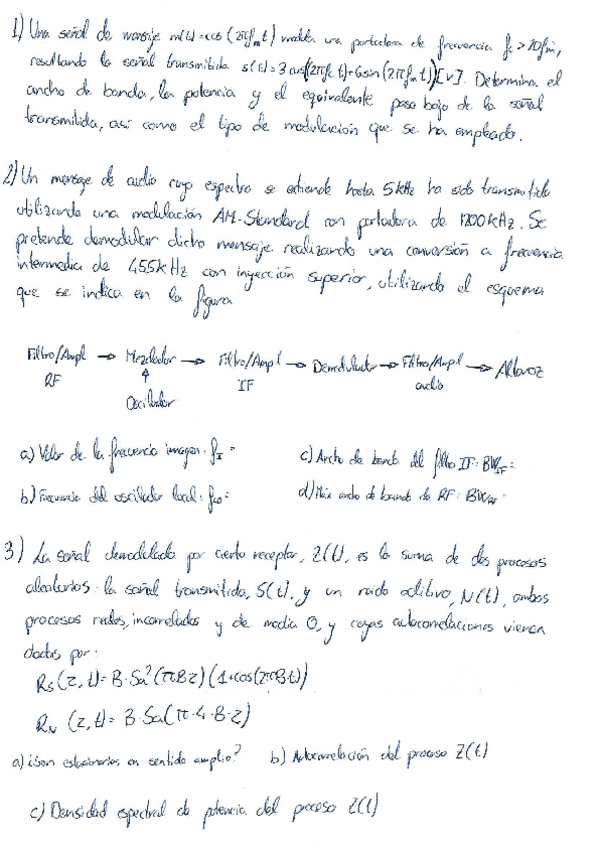 1) Una señal de mensaje m(t)=cos(2πfmt) modula una portadora de frecuencia fc>20fm,
resultando la señal transmitida s(t)=3cos(2πfct+6sin(2πfmt))[V]. Determina el
ancho de banda, la potencia y el equivalente paso bajo de la señal
transmitida, así como el tipo de modulación que se ha empleado.
2) Un mensaje de audio cuyo espectro se extiende hasta 5kHz ha sido transmitido
utilizando una modulación AM-Standard con portadora de 1200kHz. Se
pretende demodular dicho mensaje realizando una conversión a frecuencia
intermedia de 455kHz con inyección superior, utilizando el esquema
que se indica en la figura
Filtro/Ampl RF → Mezclador → Filtro/Ampl IF → Demodulador → Filtro/Ampl audio → Altavoz
↑
Oscilador
a) Valor de la frecuencia imagen. fI = c) Ancho de banda del filtro IF: BWIF=
b) Frecuencia del oscilador local: fLO= d) Máx ancho de banda de RF: BWRF=
3) La señal demodulada por cierto receptor, Z(t), es la suma de dos procesos
aleatorios: la señal transmitida, S(t), y un ruido aditivo, N(t), ambos
procesos reales, incorrelados y de media 0, y cuyas autocorrelaciones vienen
dadas por:
Rs(z,t)=B·Sa²(πBz)(1+cos(2πBt))
RN(z,t)=B·Sa(π·4·B·z)
a) ¿Son estacionarios en sentido amplio? b) Autocorrelación del proceso Z(t)
c) Densidad espectral de potencia del proceso Z(t)